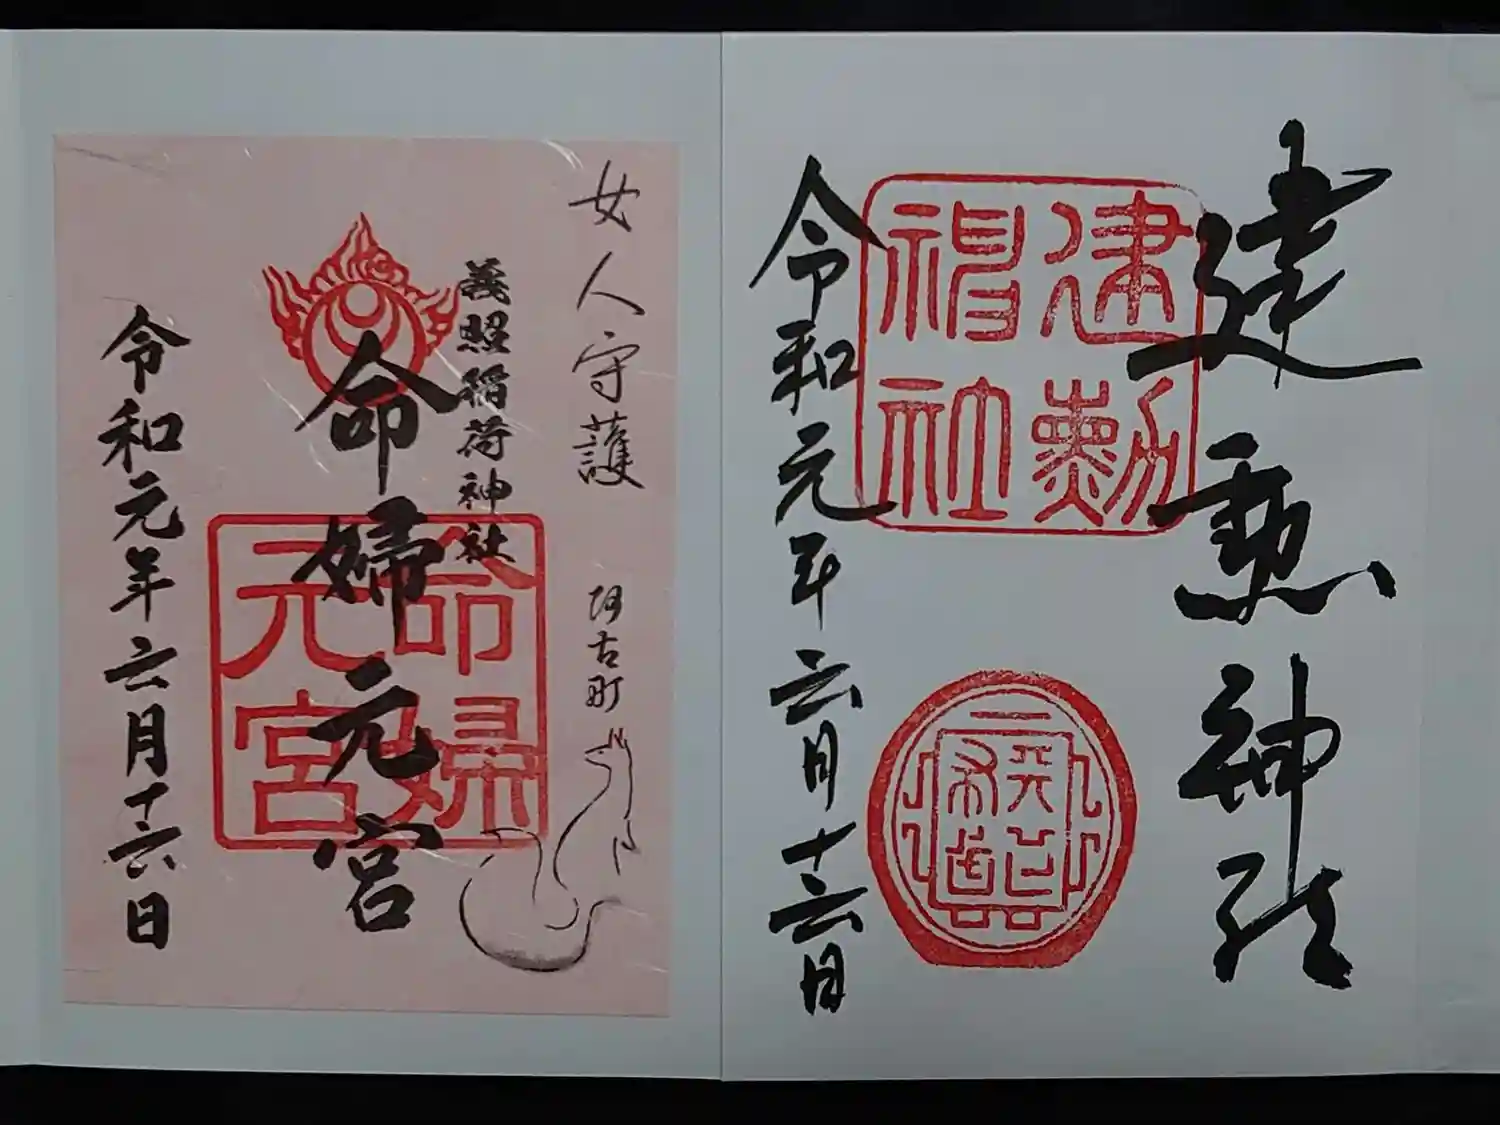 建勲神社
建勲
神社
令和元年六月十六日
女人守護
阿古町
義照稲荷神社
命婦元宮
命婦
元宮
令和元年六月十六日